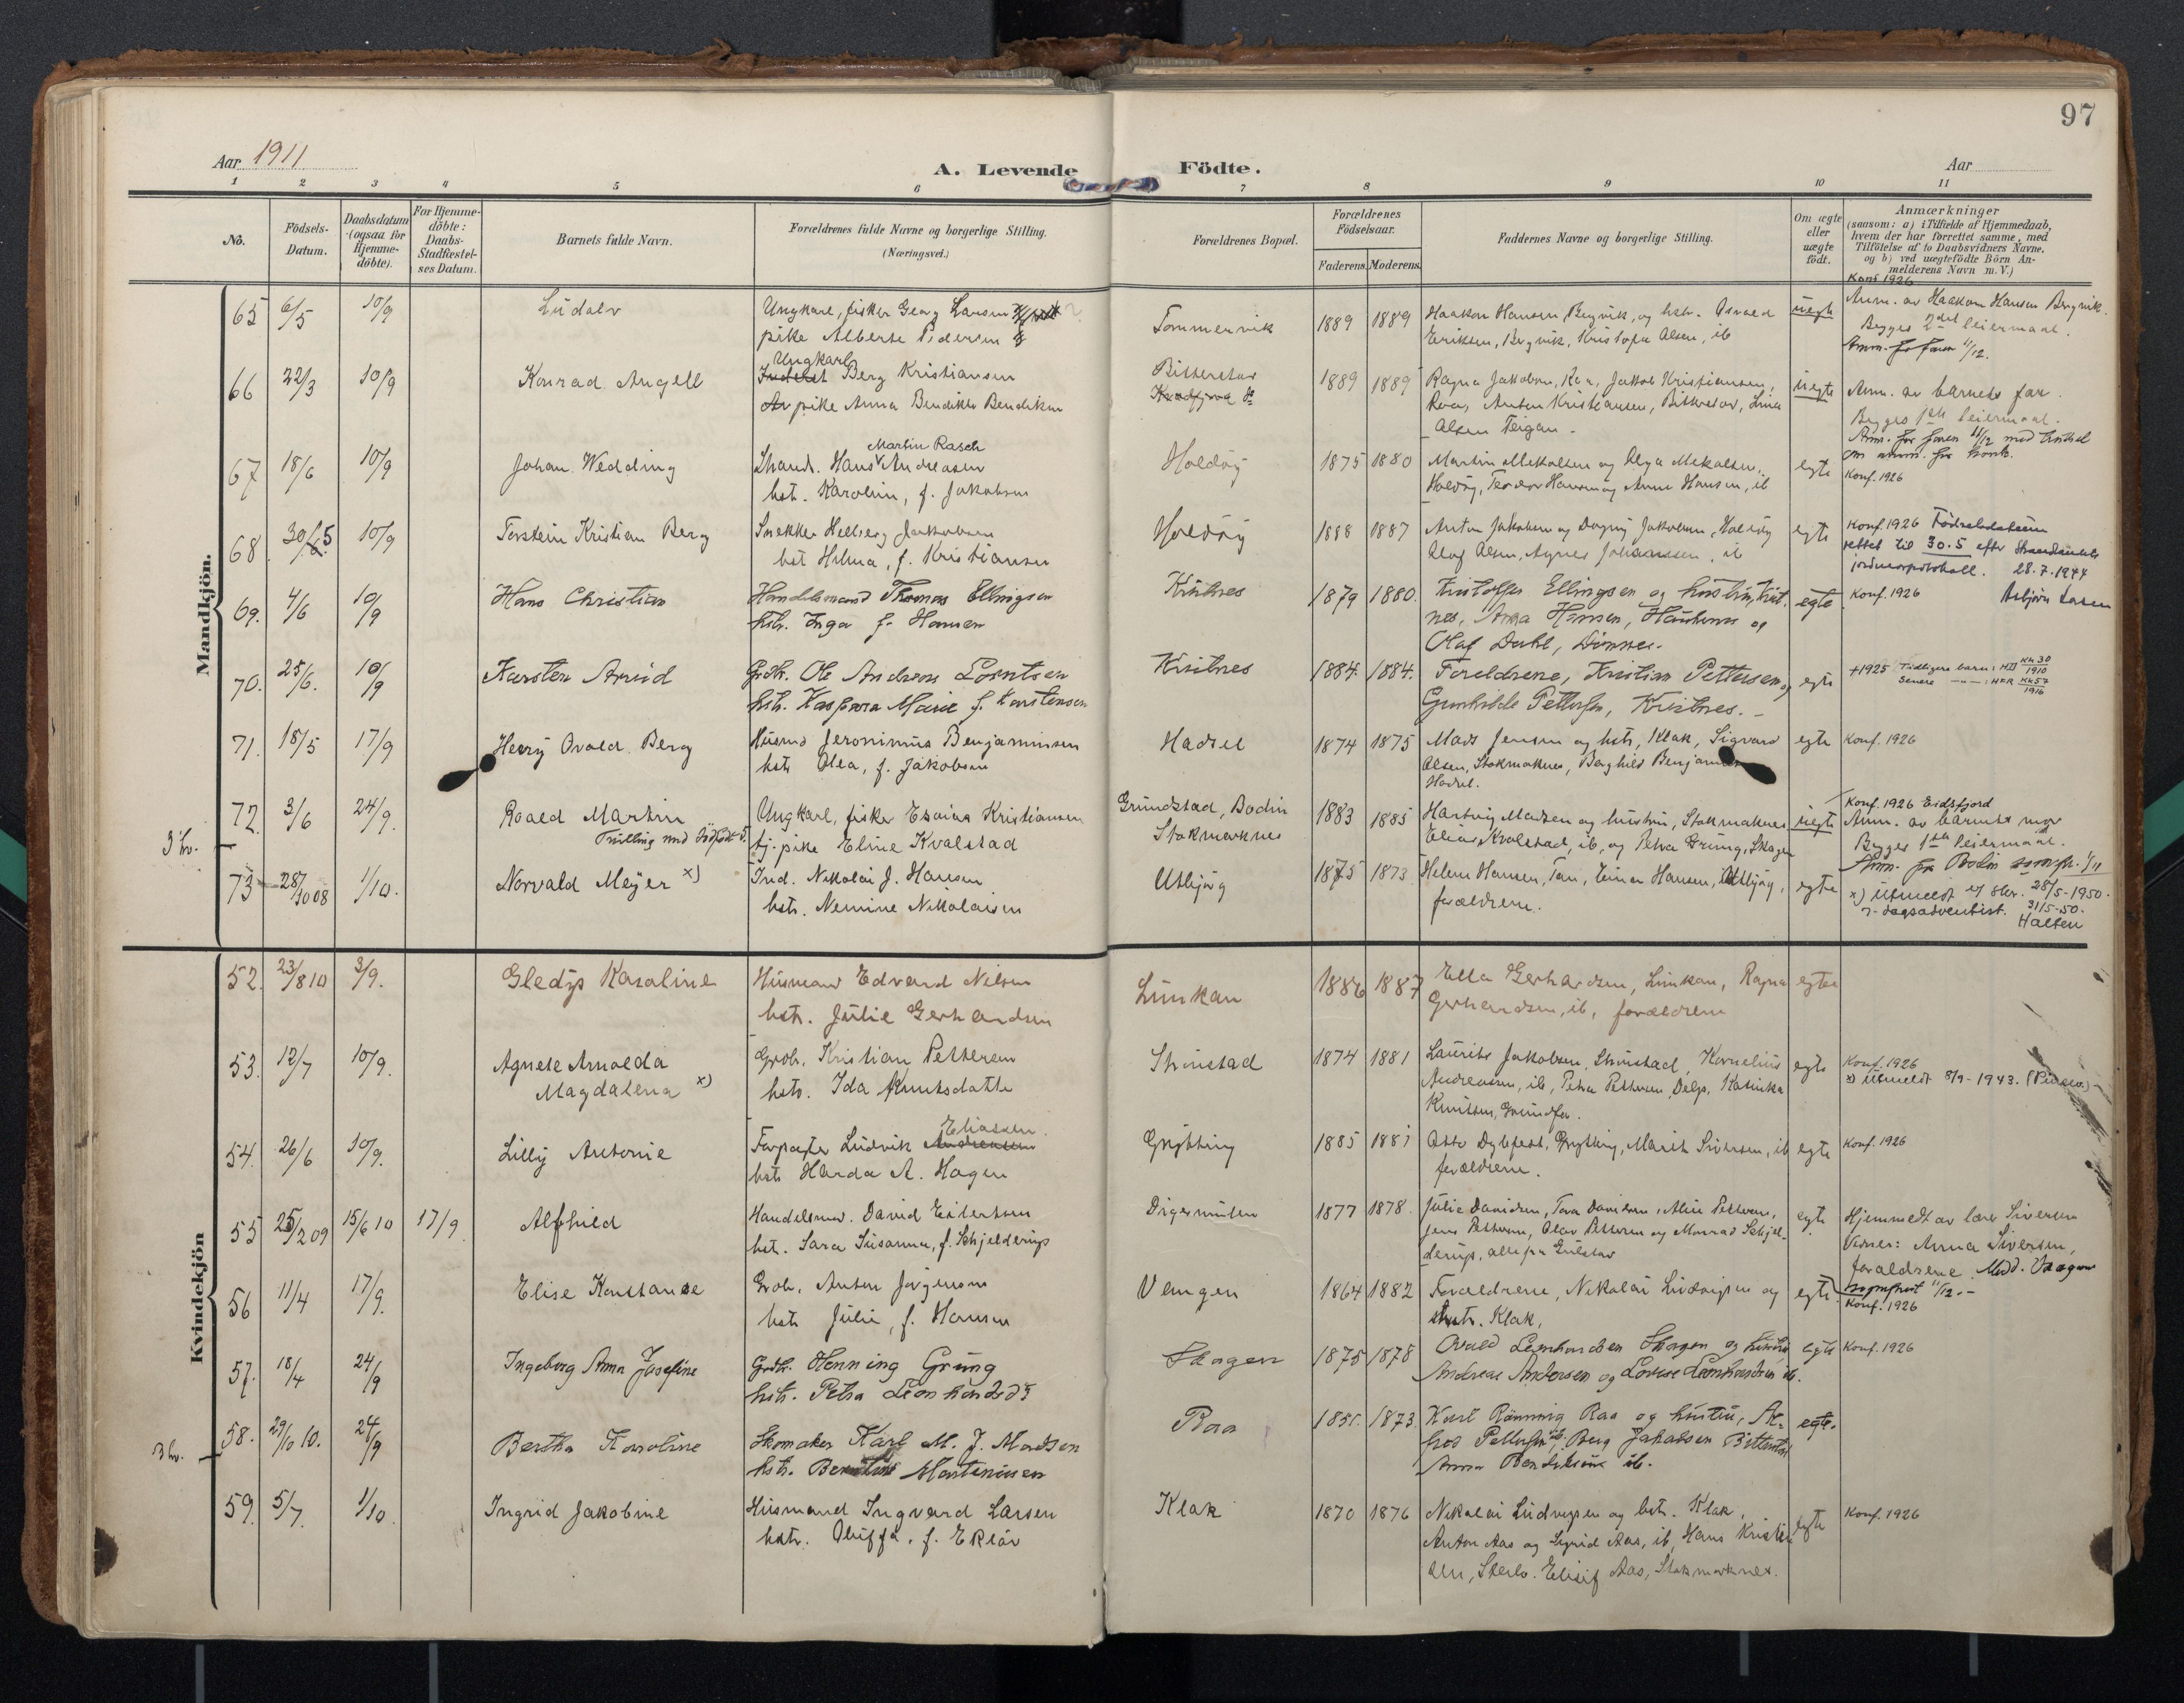 97
Aar 1911
A. Levende Födte.
Aar
1 2 3 4 5 6 7 8 9 10 11
No.
Födsels-Datum.
Daabsdatum (ogsaa for Hjemme-döbte).
For Hjemme-döbte: Daabs-Stadfæstel-ses Datum.
Barnets fulde Navn.
Forældrenes fulde Navne og borgerlige Stilling.
(Næringsvei.)
Forældrenes Bopæl.
Forældrenes Födselsaar.
Faderens. Moderens.
Faddernes Navne og borgerlige Stilling.
Om ægte eller uægte födt.
Anmærkninger
(saasom: a) i Tilfælde af Hjemmedaab, hvem der har forrettet samme, med Tilföielse af to Daabsvidners Navne, og b) ved uægtefödte Börn An-melderens Navn m. V.)
Mandkjön.
65 6/5 10/9 Ludalv
Ungkarl, fisker Georg Larsen
pike Alberte Pedersen
Tommervik 1889 1889
Haakon Hansen Bergvik, og hstr. Osvald
Eriksen, Bergvik, Kristofa Olsen, ib
uegte
Konf 1926
Anm. av Haakon Hansen Bergvik.
Begges 2det leiermaal.
66 22/3 10/9 Konrad Angell
Ungkarl
Berg Kristiansen
pike Anna Bendikte Bendiksen
Bitterstav
1889 1889
Ragna Jakobsen, Raa, Jakob Kristiansen,
Raa, Anton Kristiansen, Bitterstav, Lina
Olsen Teigan.
uegte
Anm. av barnets far.
Begges 1ste leiermaal.
67 18/6 10/9 Johan Wedding
Martin Rasch
Strands. Hans Andreasen
hst. Karoline, f. Jakobsen
Holdöy 1875 1880
Martin Mikalsen og Olga Mikalsen,
Holdöy, Teodor Hansen og Anna Hansen, ib
egte
Konf. 1926
68. 30/5 10/9 Torstein Kristian Berg
Snekker Hedberg Jakobsen
hst Helma, f. Kristiansen
Holdöy 1888 1887
Anton Jakobsen og Dagny Jakobsen, Holdöy
Olaf Olsen, Agnes Johansen, ib
egte
Konf. 1926 Födselsdatoen
rettet til 30.5 efter Strandlandets
jordmorprotokoll. 28.7.1944
Asbjörn Larsen
69. 4/6 10/9 Hans Christian
Handelsmand Thomas Ellingsen
hstr. Inga f. Hansen
Kristnes 1879 1880.
Kristoffer Ellingsen og hustru, Krist-
nes, Anna Hansen, og
Olaf Dahl, Dönnes.
egte
Konf. 1926
70. 25/6. 10/9 Karsten Arvid
Grdbr. Ole Andreas Lorntsen
hstr. Kaspara Marie f. Karstensen
Kristnes 1884. 1884.
Foreldrene, Kristian Pettersen og
Gunhilde Pettersen, Kristnes.
egte
+1925 Tidligere barn: KK 30 1910
Senere KK 57 1916
71. 18/5 17/9 Henry Ovald Berg
Husmd Jeronimus Benjaminsen
hstr Olea, f. Jakobsen
Hadsel 1874 1875
Mads Jensen og hstr, Klak, Sigvard
Olsen, Stokmarknes, Borghild Benjaminsen
Hadsel.
egte Konf. 1926
3 hv.
72. 3/6 24/9. Roald Martin
Tvilling med
Ungkarl, fisker Esaias Kristiansen
tj. pike Eline Kvalstad
Grundstad, Bodin
Stokmarknes
1883 1885
Hartvig Madsen og hustru, Stokmarknes
Elias Kvalstad, ib, og Petra Grung, Skagen
uegte
Konf. 1926 Eidsfjord
Anm. av barnets mor
Begges 1ste leiermaal.
73 28/10 08 1/10. Norvald Meyer x)
Ind. Nikolai J. Hansen
hst. Nemine Nikolaisen
Utbjörg 1875 1873
Helene Hansen, Tan, Einar Hansen, Utbjörg,
forældrene.
egte
x) Utmeldt 28/5-1950.
7-dagsadventist. 31/5-50.
Halsen
Kvindekjön
52. 23/8 10 3/9. Gledys Karoline
Husmand Edvard Nilsen
hstr. Julie Gerhardsen
Lunkan 1886 1887
Ella Gerhardsen, Lunkan, Ragna
Gerhardsen, ib, forældrene
egte
53. 12/7 10/9. Agnete Arnolda
Magdalena x)
Grbr. Kristian Pettersen
hstr. Ida Knutsdatter
Steinstad 1874 1881
Laurits Jakobsen, Steinstad, Kornelius
Andreasen, ib, Petra Pettersen, Delp, Katinka
Knutsen, Grundfør.
egte
Konf. 1926
x) Utmeldt 8/9-1943. (Pinsev.)
54. 26/6 10/9. Lilly Antonie
Eliassen
Forpagter Ludvik Andreasen
hstr Harda A. Hagen
Grytting 1885 1881
Otto Dybfest, Grytting, Marit Sivertsen, ib
forældrene.
egte Konf. 1926
55 25/2 09 15/6 10 17/9. Alfhild
Handelsmd. David Eilertsen
hst. Sara Susanna, f. Schjelderup
Digermulen 1877 1878.
Julie Davidsen, Tora Davidsen, Alin Pettersen,
Jens Pettersen, Olav Pettersen og Monrad Schjel-
derup, alle fra Gulstav
egte
Hjemmedt av lærer Sivertsen
Vidner: Anna Sivertsen,
forældrene. Medd. Vaagan
56 11/4 17/9. Elise Konstanse
Grbr. Anton Jörgensen
hstr Julie, f. Hansen
Vengen 1864 1882
Forældrene, Nikolai Ludvigsen og
hustr. Klak,
egte
sogneprest 11/12.
Konf. 1926
57. 18/4 24/9 Ingeborg Anna Josefine
Grdbr. Henning Grung
hstr. Petra Leonhardsd
Skagen 1875 1878
Ovald Leonhardsen Skagen og hustru
Andreas Andersen og Lovise Leonhardsen ib.
egte Konf. 1926
3 hv.
58. 29/10 10. 24/9 Bertha Karoline
Skomaker Karl M. J. Madsen
hstr. Berntine Martinusen
Raa 1851. 1873.
Karl Rönning Raa og hustru, Al-
fred Pettersen ib. Berg Jakobsen Bitterstad
Anna Bendiksen ib.
egte.
59. 5/7. 1/10. Ingrid Jakobine
Husmand Ingvard Larsen
hstr. Oluffa, f. Eklöv
Klak 1870 1876
Nikolai Ludvigsen og hst. Klak,
Anton Aas og Sigrid Aas, ib, Hans Kristian
sen, Elisif Aas, Stokmarknes.
egte Konf. 1926